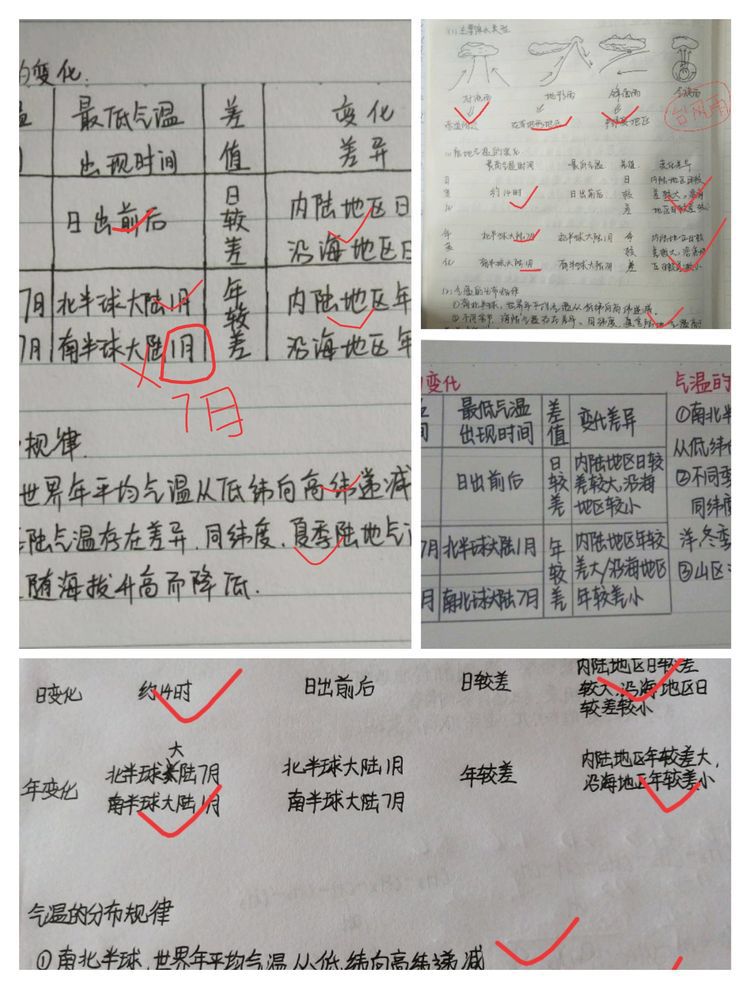 的变化
最低气温 差 变化
出现时间 值 差异
日出前后 日较差 内陆地区日
沿海地区日
7月 北半球大陆1月 年较差 内陆地区年
7月 南半球大陆1月 沿海地区年
7月
规律
世界年平均气温从低纬向高纬递减
陆气温存在差异.同纬度,夏季陆地气
随海拔升高而降低.
对流雨 地形雨 锋面雨
台风雨
最高气温时间 差值 变化差异
约14时 日出前后 日较差 内陆地区日较
差较大,沿海
北半球大陆7月 北半球大陆1月 年较差
南半球大陆1月 南半球大陆7月
变化 气温的
最低气温 差值 变化差异 ①南北半
出现时间 从低纬
日出前后 日较差 内陆地区日较 ②不同
差较大,沿海 同纬度
地区较小 洋,冬
7月 北半球大陆1月 年较差 内陆地区年较 ③山区
差大/沿海地区
月 南北球大陆7月 年较差小
日变化 约14时 日出前后 日较差 内陆地区日较差
较大,沿海地区日
较差较小
大
年变化 北半球陆7月 北半球大陆1月 年较差 内陆地区年较差大,
南半球大陆1月 南半球大陆7月 沿海地区年较差小
气温的分布规律
①南北半球,世界年平均气温从低纬向高纬递减